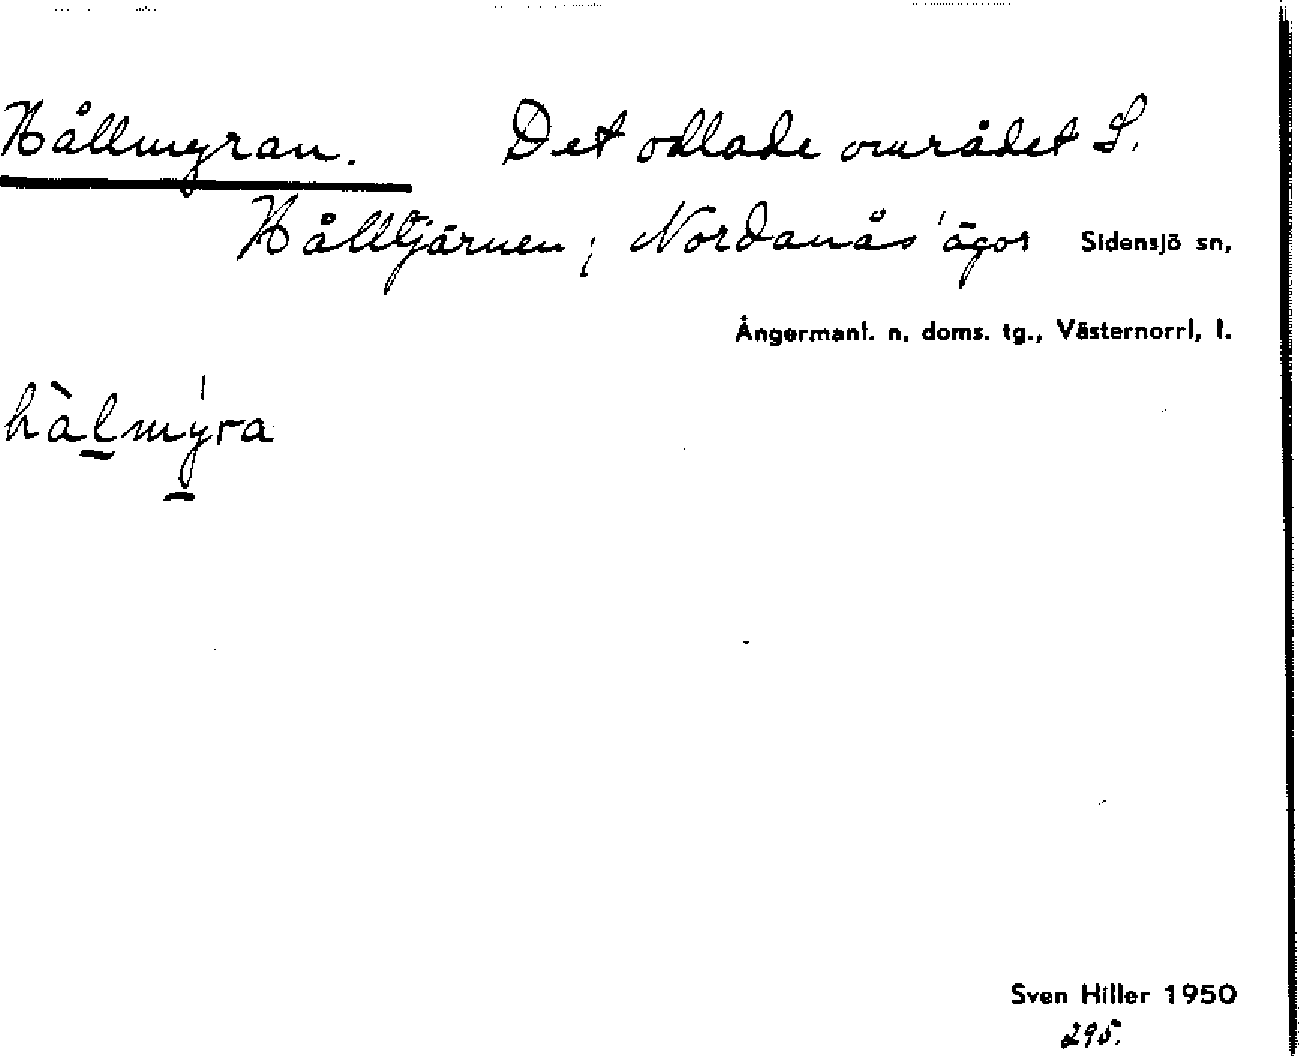 Hållmyran. Det odlade området S.
Hålltjärnen; Nordanås' ägor Sidensjö sn,
Ångermanl. n. doms. tg., Västernorrl, l.
hàlmýra
Sven Hiller 1950
295.